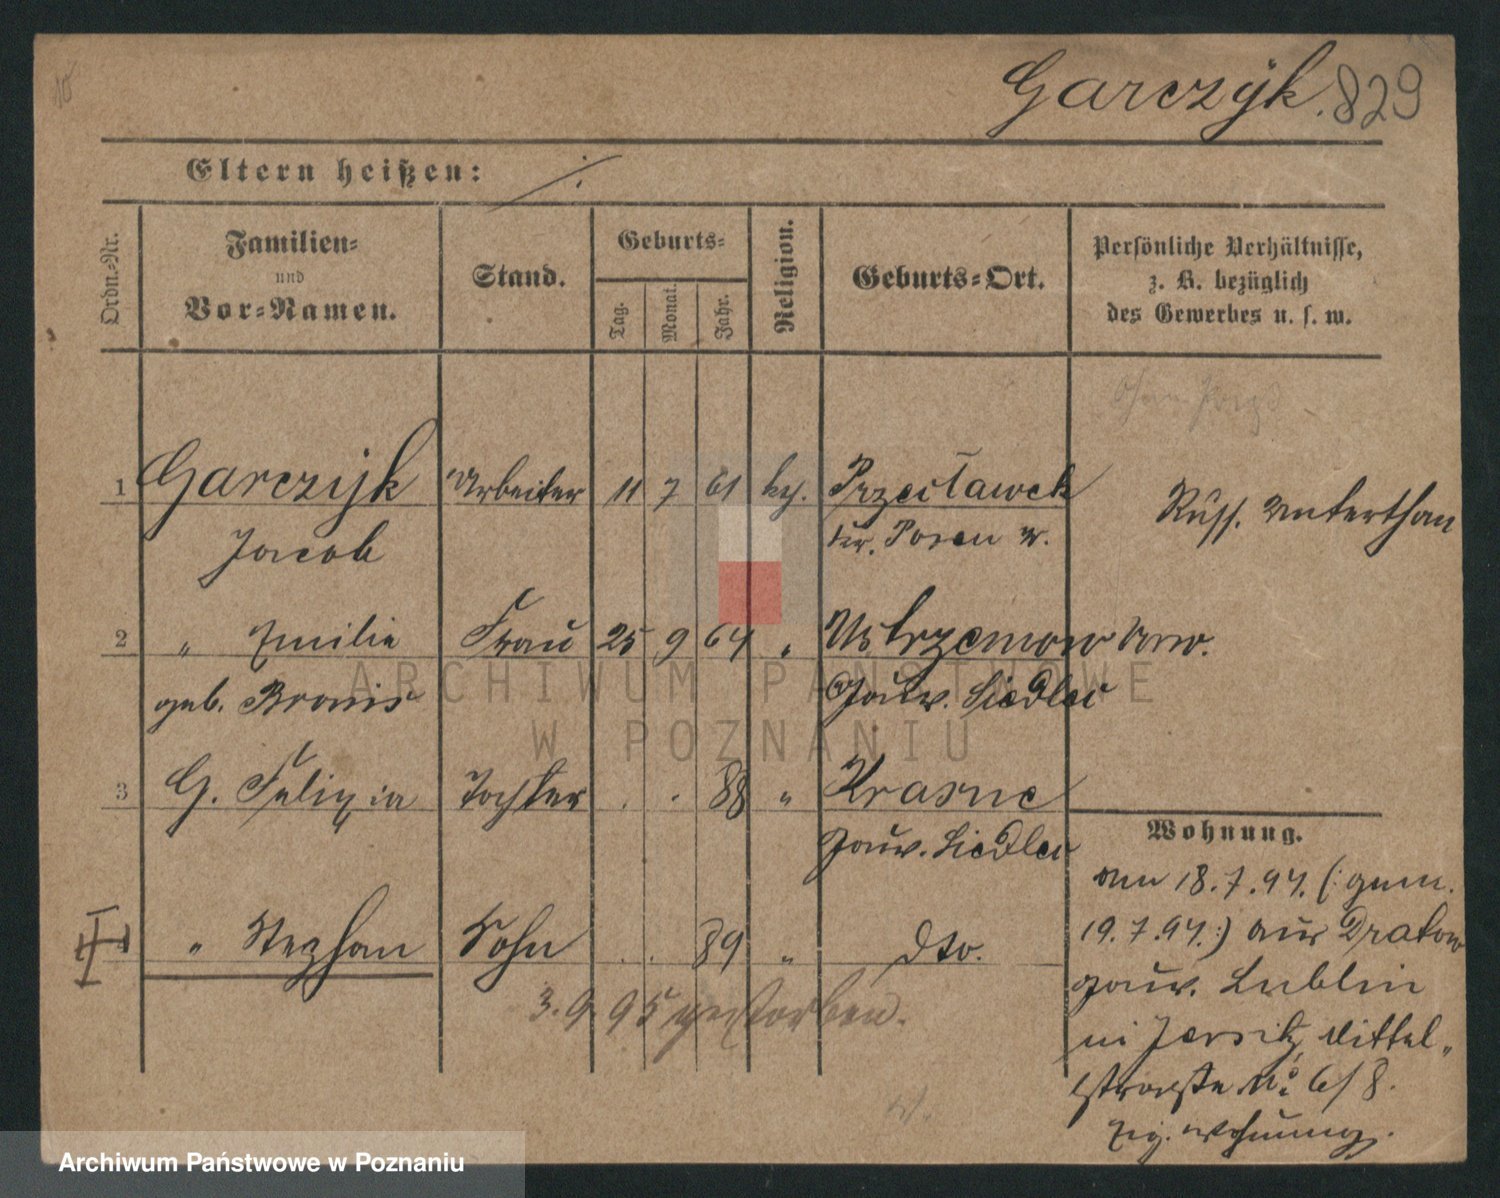 Garczyk. 829
Eltern heißen: ./.
Ordn.-Nr.
Familien-
und
Vor-Namen.
Stand.
Geburts-
Tag.
Monat.
Jahr.
Religion.
Geburts-Ort.
Persönliche Verhältnisse,
z. B. bezüglich
des Gewerbes u. s. w.
1 Garczyk Arbeiter 11 7 61 Przecławek
Jacob Posen W.
Russ. Unterthan
2 " Emilie Frau 25 9 64 "
geb. Bronis Gouv. Siedlec
3 G. Felixia Tochter . . 88 " Krasne
Gouv. Siedlec
Wohnung.
" Stephan Sohn . . 89 " dto.
3. 9. 95 gestorben.
18. 7. 94. (: gem.
19. 7. 94. :) aus Dratow
Gouv. Lublin
in Jersitz, Mittel-
strasse No 6/8.
Wohnung.
ARCHIWUM PAŃSTWOWE
W POZNANIU
Archiwum Państwowe w Poznaniu